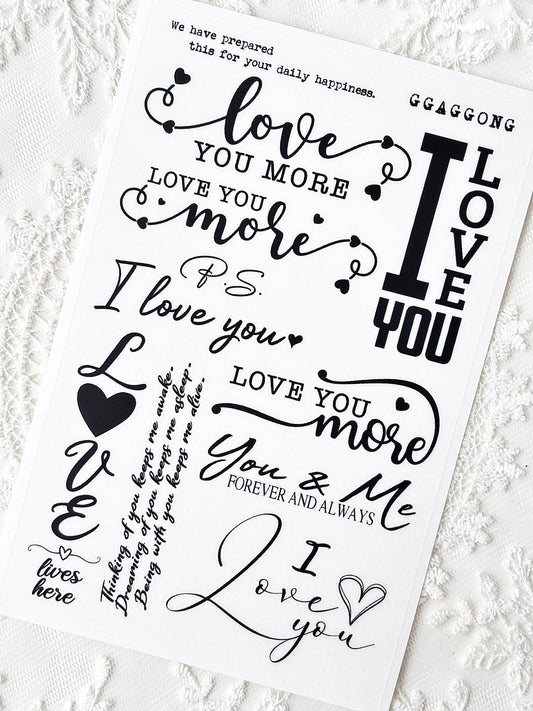 We have prepared
this for your daily happiness.
GGAGGONG
love
YOU MORE
LOVE YOU
more
I
LOVE
YOU
P.S.
I love you
LOVE YOU
more
L
VE
lives
here
Thinking of you keeps me awake.
Dreaming of you keeps me asleep.
Being with you keeps me alive.
You & Me
FOREVER AND ALWAYS
I
Love
you